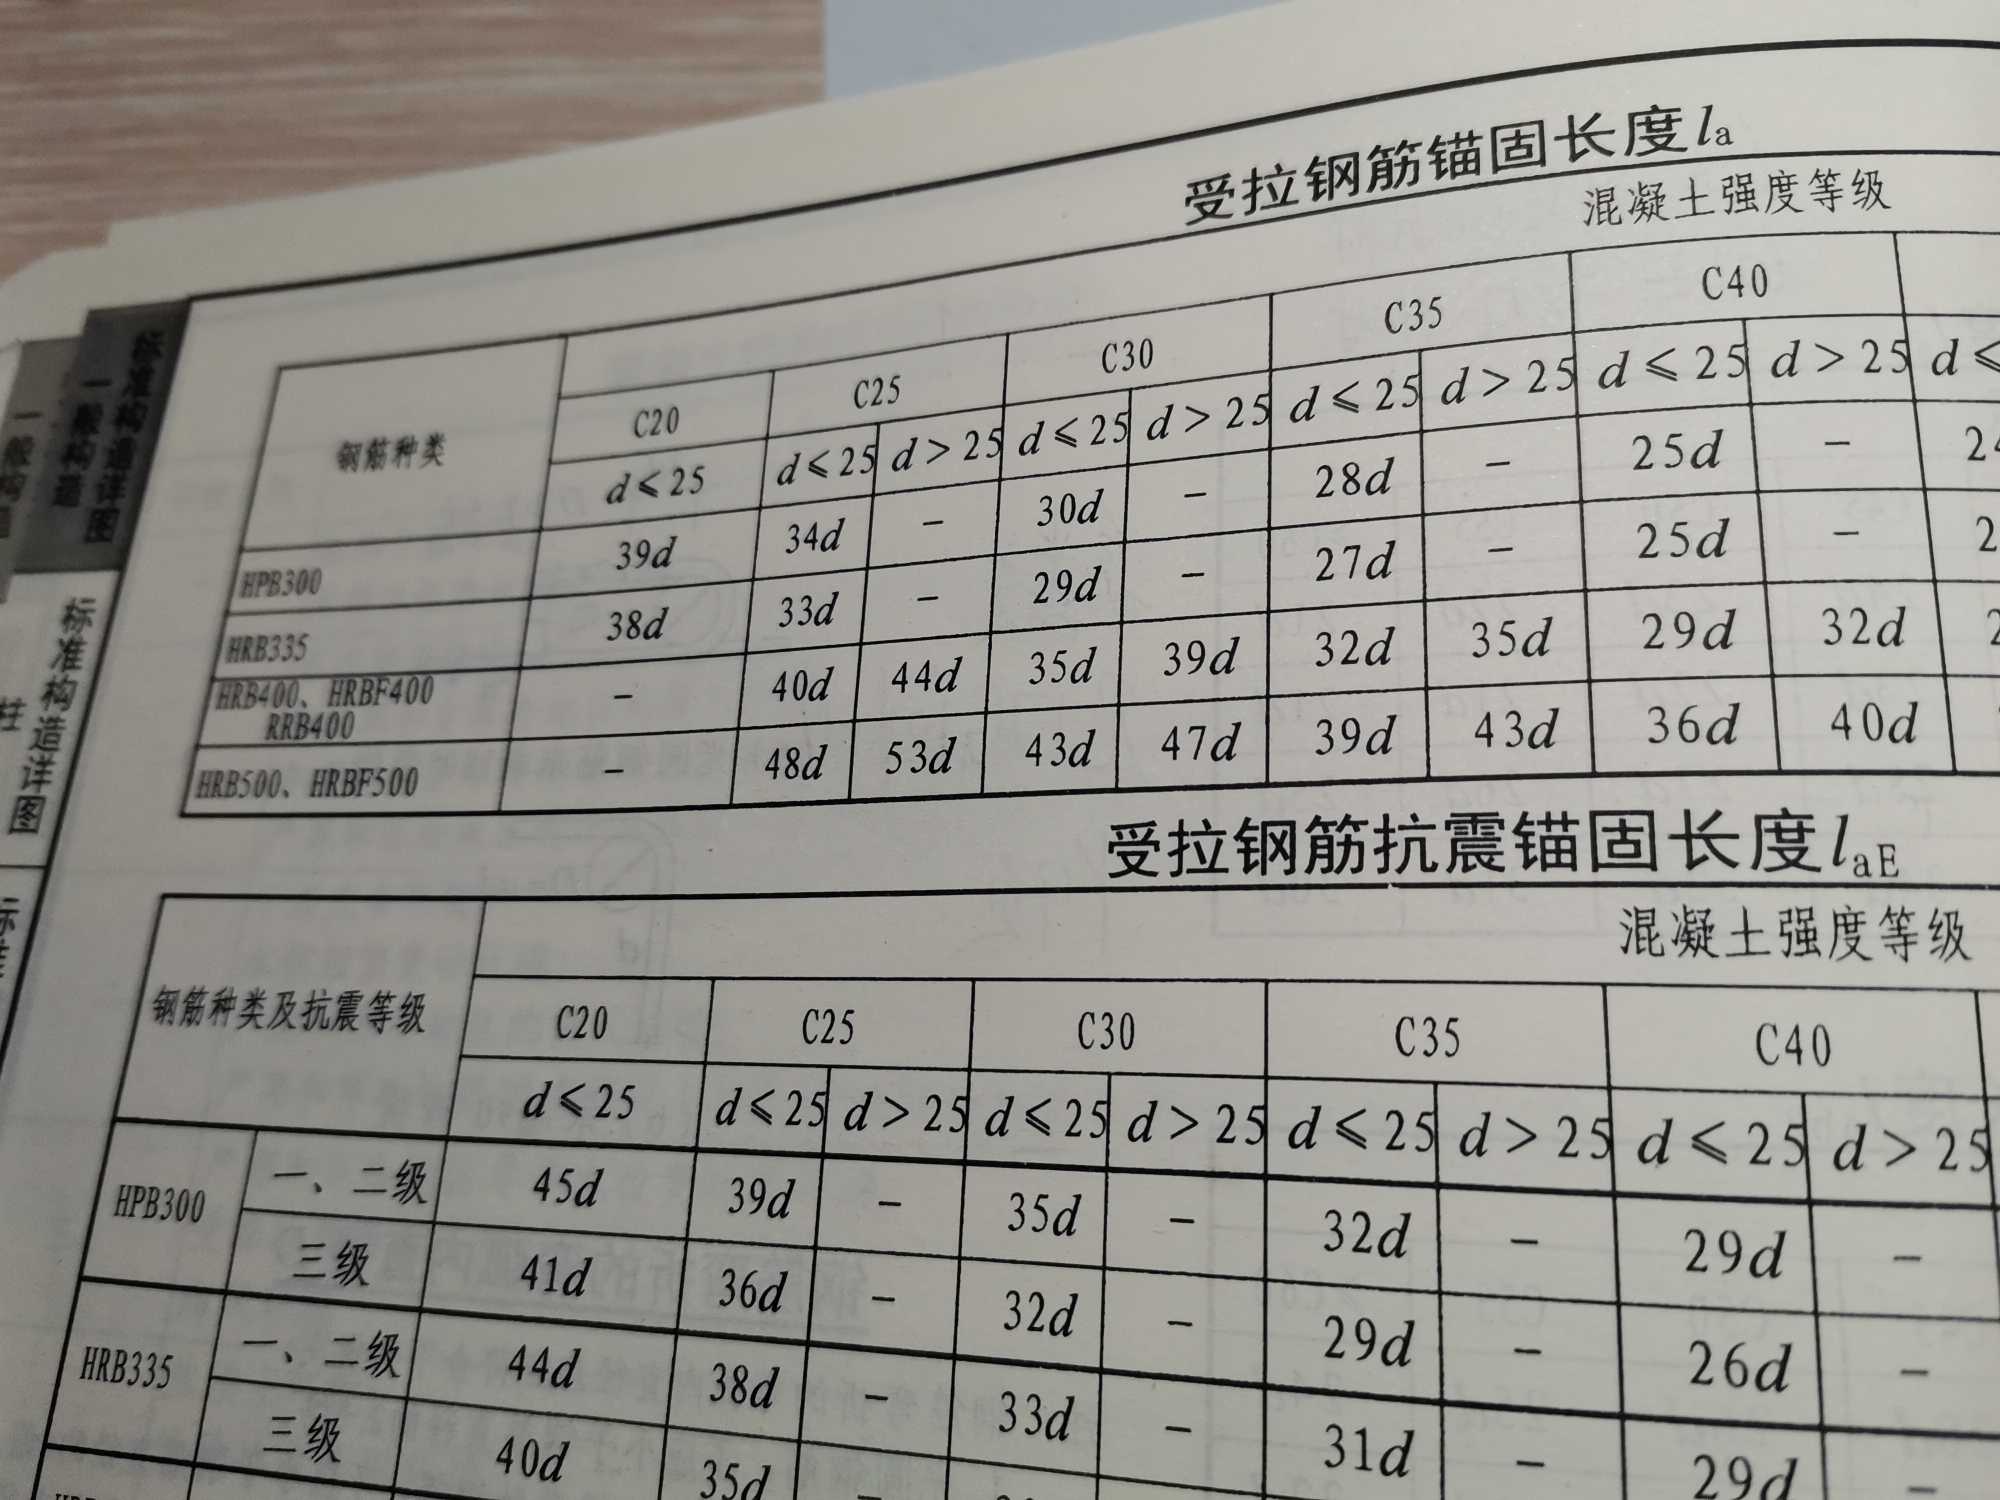 受拉钢筋锚固长度la
钢筋种类 混凝土强度等级
C20 C25 C30 C35 C40
d≤25 d≤25 d>25 d≤25 d>25 d≤25 d>25 d≤25 d>25 d≤
HPB300 39d 34d - 30d - 28d - 25d -
HRB335 38d 33d - 29d - 27d - 25d -
HRB400、HRBF400
RRB400 - 40d 44d 35d 39d 32d 35d 29d 32d
HRB500、HRBF500 - 48d 53d 43d 47d 39d 43d 36d 40d
受拉钢筋抗震锚固长度laE
钢筋种类及抗震等级 混凝土强度等级
C20 C25 C30 C35 C40
d≤25 d≤25 d>25 d≤25 d>25 d≤25 d>25 d≤25 d>25
HPB300 一、二级 45d 39d - 35d - 32d - 29d -
三级 41d 36d - 32d - 29d - 26d -
HRB335 一、二级 44d 38d - 33d - 31d - 29d -
三级 40d 35d -
标准构造详图
一般构造
标准构造详图
柱